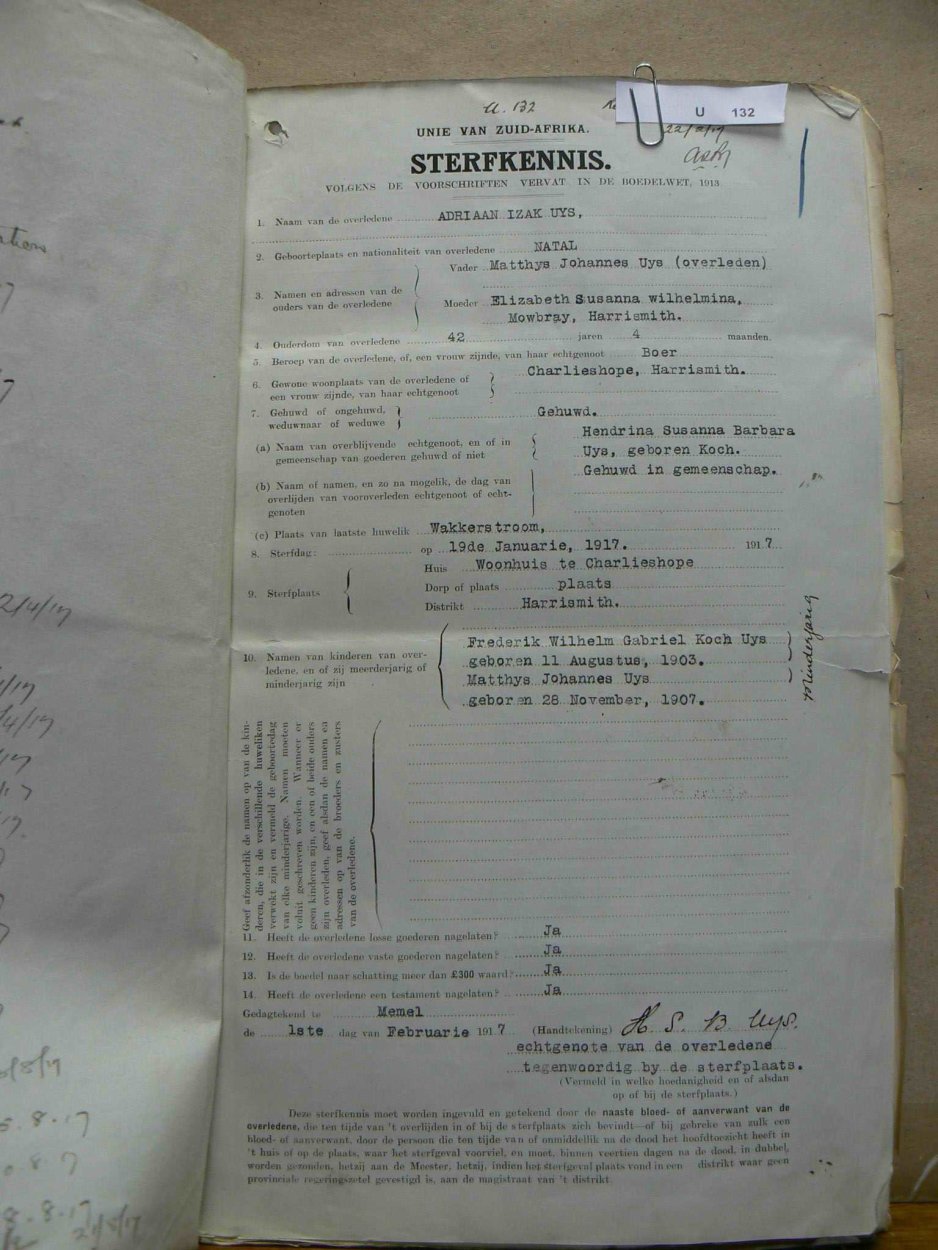 a. 132
U 132
UNIE VAN ZUID-AFRIKA.
STERFKENNIS.
VOLGENS DE VOORSCHRIFTEN VERVAT IN DE BOEDELWET, 1913
1. Naam van de overledene ADRIAAN IZAK UYS,
2. Geboorteplaats en nationaliteit van overledene NATAL
3. Namen en adressen van de ouders van de overledene
Vader Matthys Johannes Uys (overleden)
Moeder Elizabeth Susanna wilhelmina,
Mowbray, Harrismith.
4. Ouderdom van overledene 42 jaren 4 maanden.
5. Beroep van de overledene, of, een vrouw zijnde, van haar echtgenoot Boer
6. Gewone woonplaats van de overledene of
een vrouw zijnde, van haar echtgenoot
Charlieshope, Harrismith.
7. Gehuwd of ongehuwd,
weduwnaar of weduwe
Gehuwd.
(a) Naam van overblijvende echtgenoot, en of in
gemeenschap van goederen gehuwd of niet
Hendrina Susanna Barbara
Uys, geboren Koch.
Gehuwd in gemeenschap.
(b) Naam of namen, en zo na mogelik, de dag van
overlijden van vooroverleden echtgenoot of echt-
genoten
(c) Plaats van laatste huwelik Wakkerstroom,
8. Sterfdag: op 19de Januarie, 1917. 1917
9. Sterfplaats
Huis Woonhuis te Charlieshope
Dorp of plaats plaats
Distrikt Harrismith.
10. Namen van kinderen van over-
ledene, en of zij meerderjarig of
minderjarig zijn
Frederik Wilhelm Gabriel Koch Uys
geboren 11 Augustus, 1903.
Matthys Johannes Uys
geboren 28 November, 1907.
Minderjarig
Geef afzonderlik de namen op van de kin-
deren, die in de verschillende huweliken
verwekt zijn en vermeld de geboortedag
van elke minderjarige. Namen moeten
voluit geschreven worden. Wanneer er
geen kinderen zijn, en een of beide ouders
zijn overleden, geef alsdan de namen en
adressen op van de broeders en zusters
van de overledene.
11. Heeft de overledene losse goederen nagelaten? Ja
12. Heeft de overledene vaste goederen nagelaten? Ja
13. Is de boedel naar schatting meer dan £300 waard? Ja
14. Heeft de overledene een testament nagelaten? Ja
Gedagtekend te Memel
de 1ste dag van Februarie 1917 (Handtekening) H. S. B. Uys.
echtgenote van de overledene
tegenwoordig by de sterfplaats.
(Vermeld in welke hoedanigheid en of alsdan
op of bij de sterfplaats.)
Deze sterfkennis moet worden ingevuld en getekend door de naaste bloed- of aanverwant van de
overledene, die ten tijde van 't overlijden in of bij de sterfplaats zich bevindt—of bij gebreke van zulk een
bloed- of aanverwant, door de persoon die ten tijde van of onmiddellik na de dood het hoofdtoezicht heeft in
't huis of op de plaats, waar het sterfgeval voorviel, en moet, binnen veertien dagen na de dood, in dubbel,
worden gezonden, hetzij aan de Meester, hetzij, indien het sterfgeval plaats vond in een distrikt waar geen
provinciale regeringszetel gevestigd is, aan de magistraat van 't distrikt.